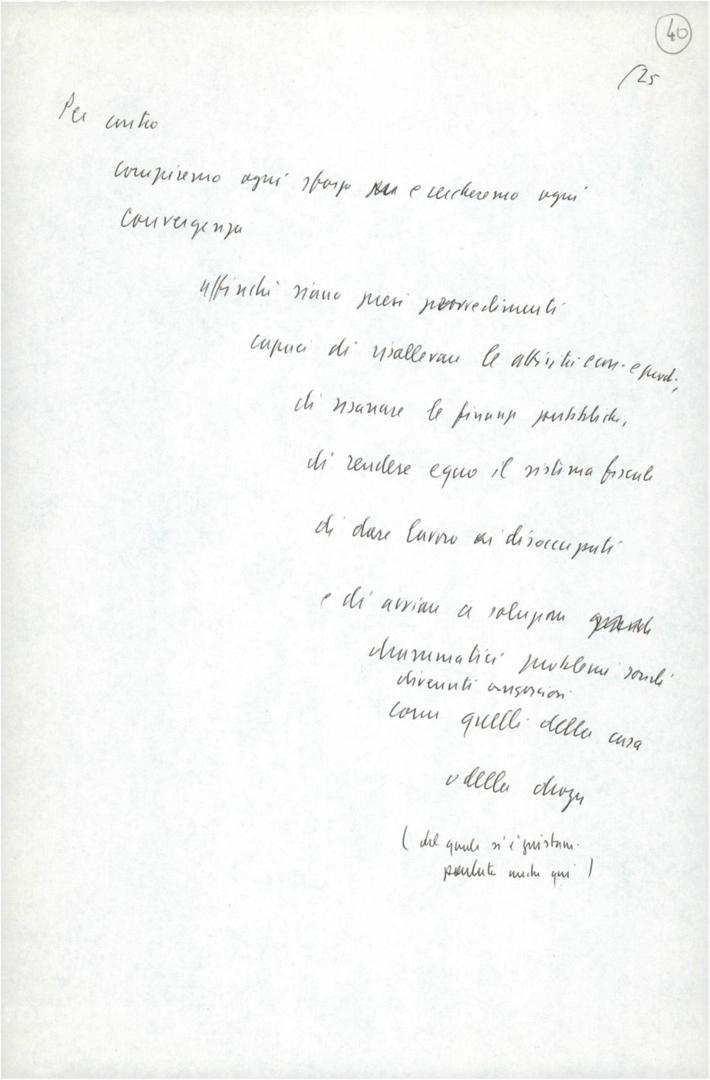 40
/25
Per contro
compiremo ogni sforzo e cercheremo ogni
convergenza
affinché siano presi provvedimenti
capaci di risollevare le attività econ. e prod.,
di risanare le finanze pubbliche,
di rendere equo il sistema fiscale
di dare lavoro ai disoccupati
e di avviare a soluzione
drammatici problemi sociali
divenuti angosciosi
come quelli della casa
o della droga
(del quale si è giustam.
parlato anche qui)